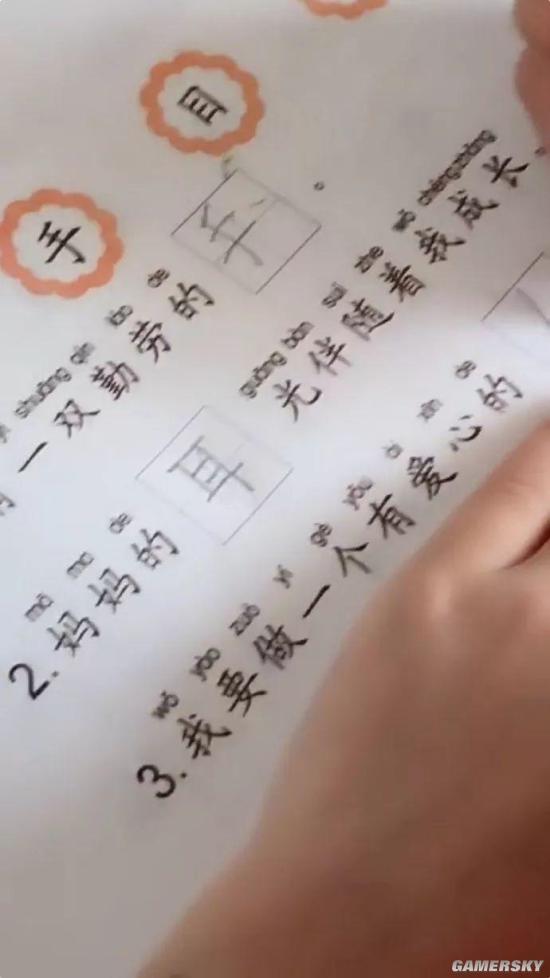 目
手
shuāng qín láo de
一双勤劳的手。
mā ma de guāng bàn suí zhe wǒ chéngzhǎng
2. 妈妈的耳光伴随着我成长。
wǒ yào zuò yí gè yǒu ài xīn de
3. 我要做一个有爱心的
GAMERSKY